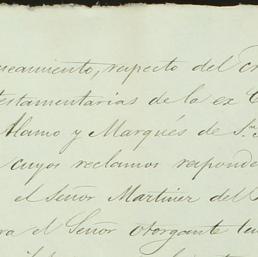 neamiento, respecto del cr
testamentarias de la ex C
Alamo y Marqués de Sn.
cuyos reclamos responde
el Señor Martinez del
ra el Señor otorgante